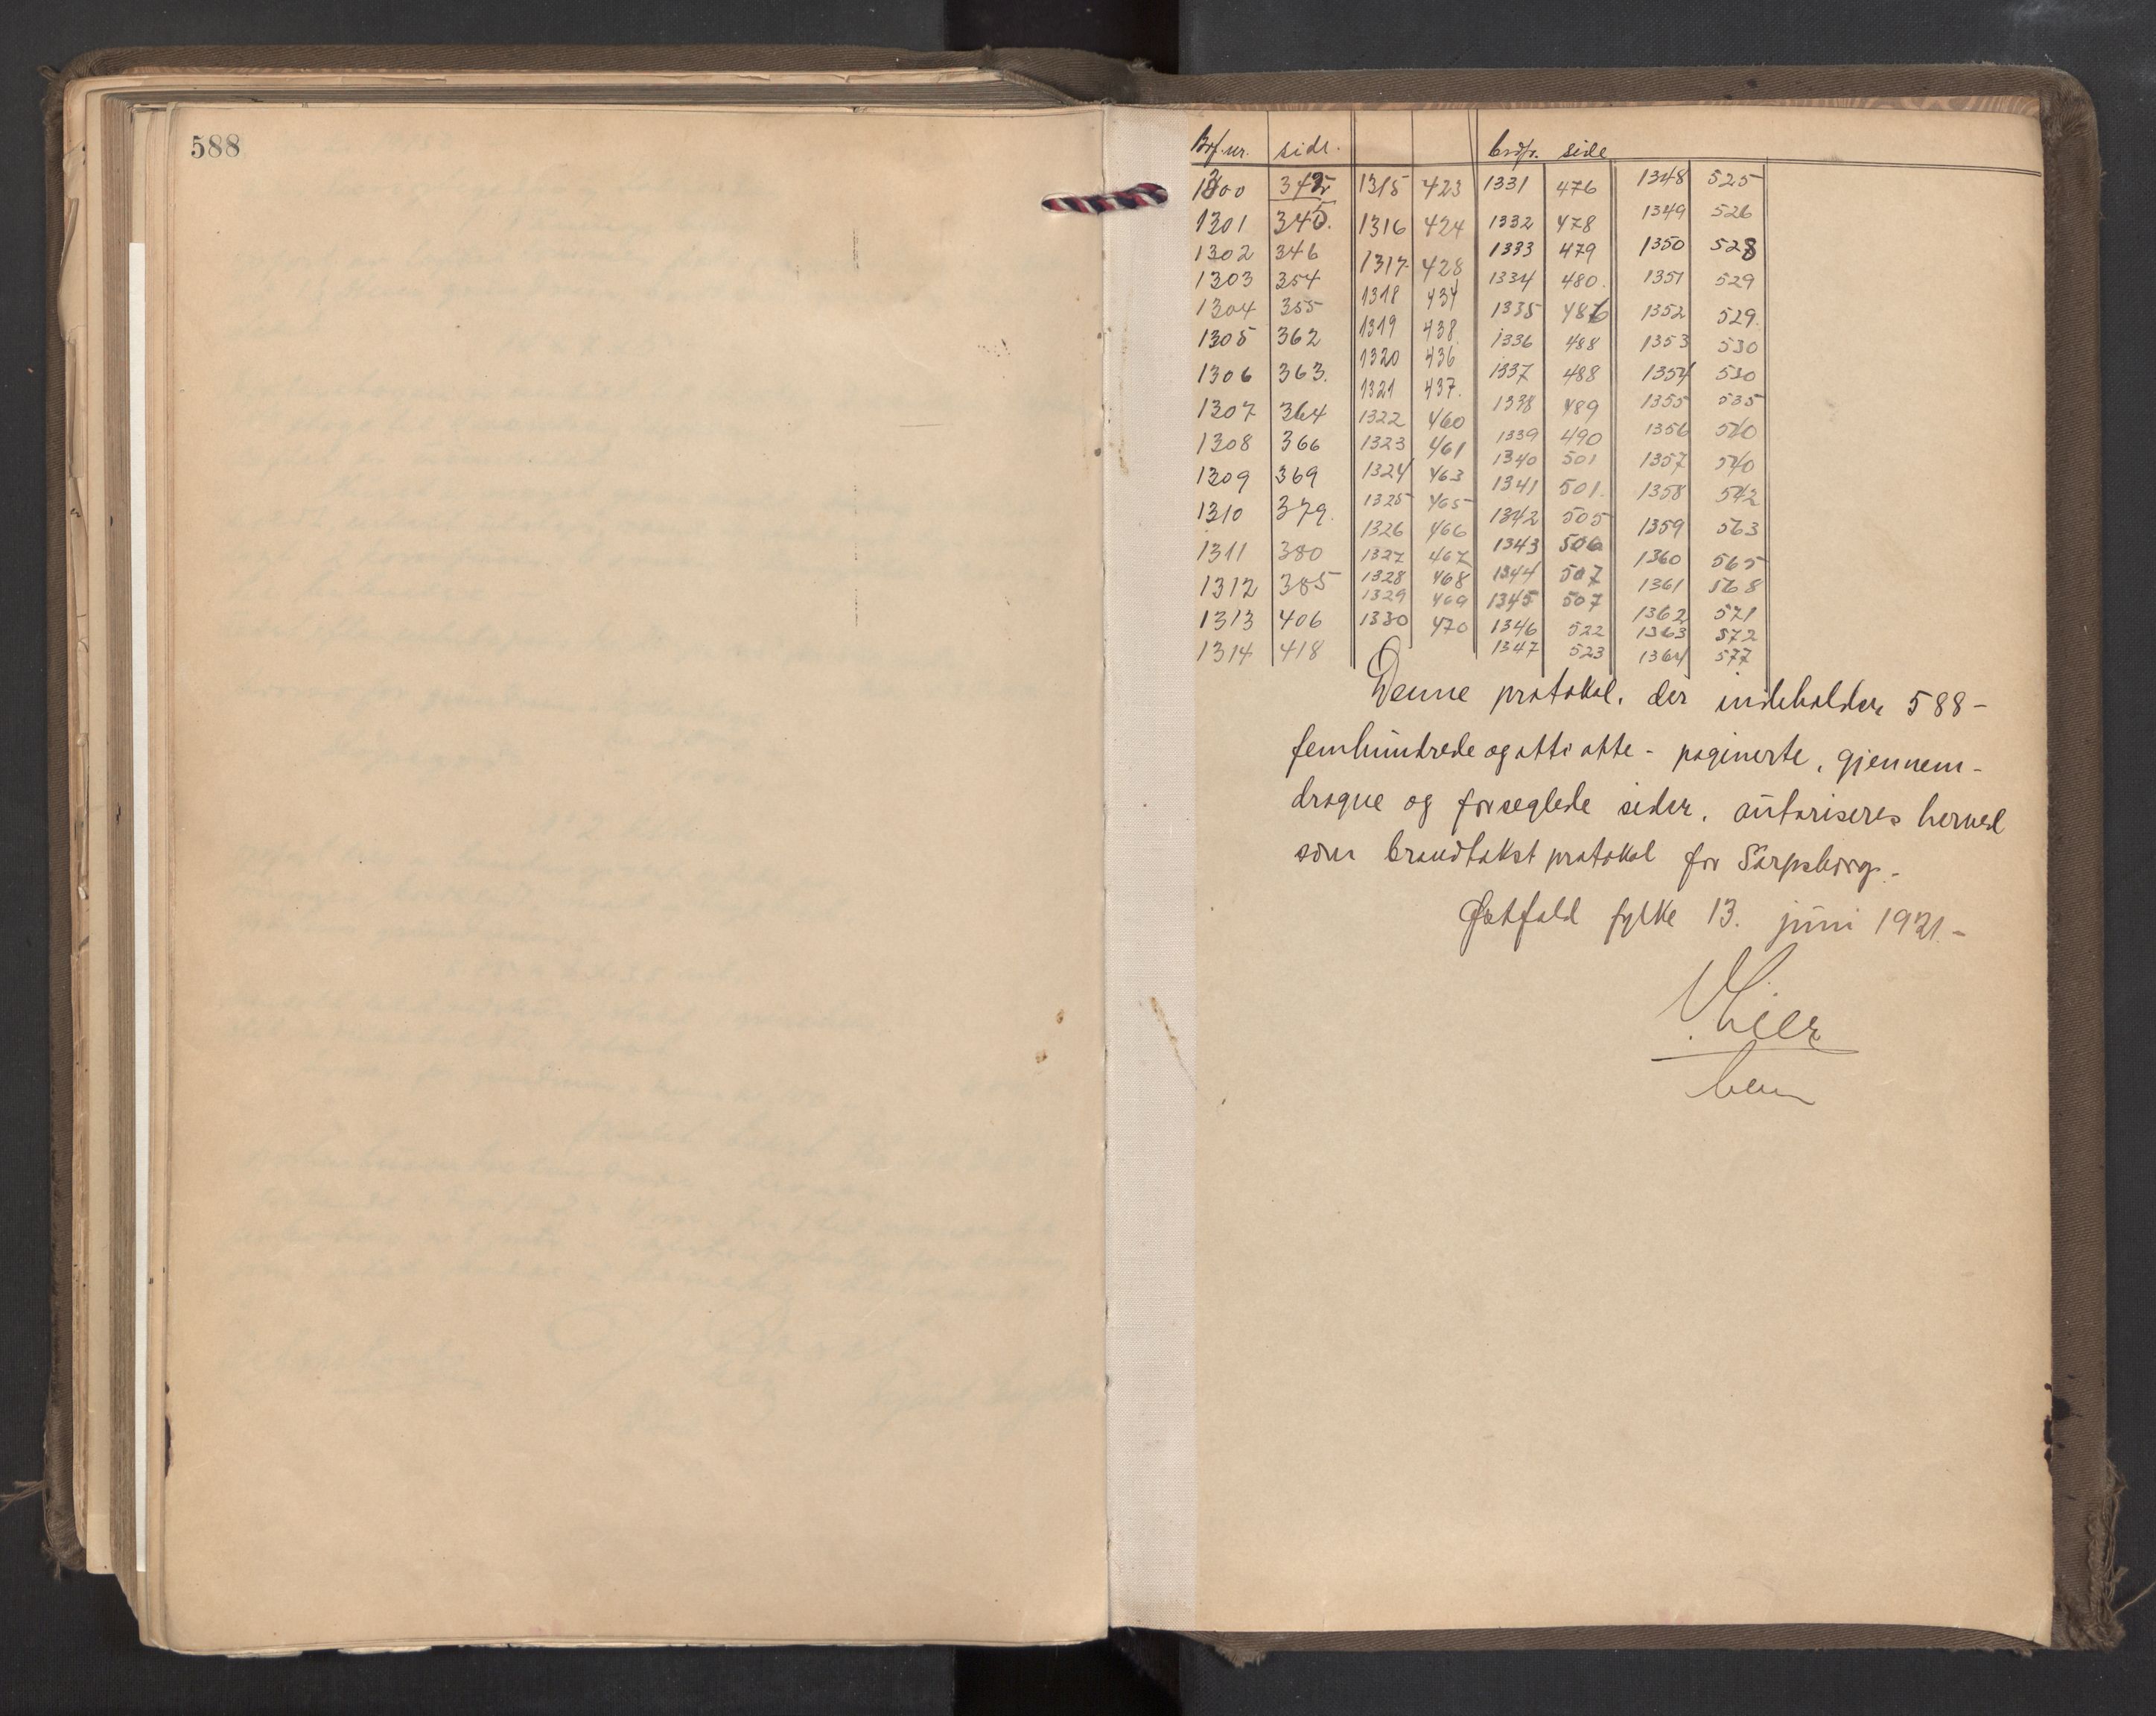 588
Brf. nr. side. brdfr. side
1300 345 1315 423 1331 476 1348 525
1301 345. 1316 424 1332 478 1349 526
1302 346 1317 428 1333 479 1350 528
1303 354 1318 434 1334 480. 1351 529
1304 355 1319 438. 1335 486 1352 529.
1305 362 1320 436 1336 488 1353 530
1306 363. 1321 437. 1337 488 1354 530
1307 364 1322 460 1338 489 1355 535
1308 366 1323 461 1339 490 1356 540
1309 369 1324 463 1340 501 1357 540
1310 379. 1325 465 1341 501. 1358 542
1311 380 1326 466 1342 505 1359 563
1312 385 1327 467 1343 506 1360 565
1313 406 1328 468 1344 507 1361 568
1314 418 1329 469 1345 507 1362 571
1330 470 1346 522 1363 572
1347 523 1364 577
Denne protokol, der indeholder 588-
femhundrede og otti otte - paginerte, gjennem-
dragne og forseglede sider, autoriseres herved
som brandtakst protokol for Sarpsborg.-
Østfold fylke 13. juni 1921.-